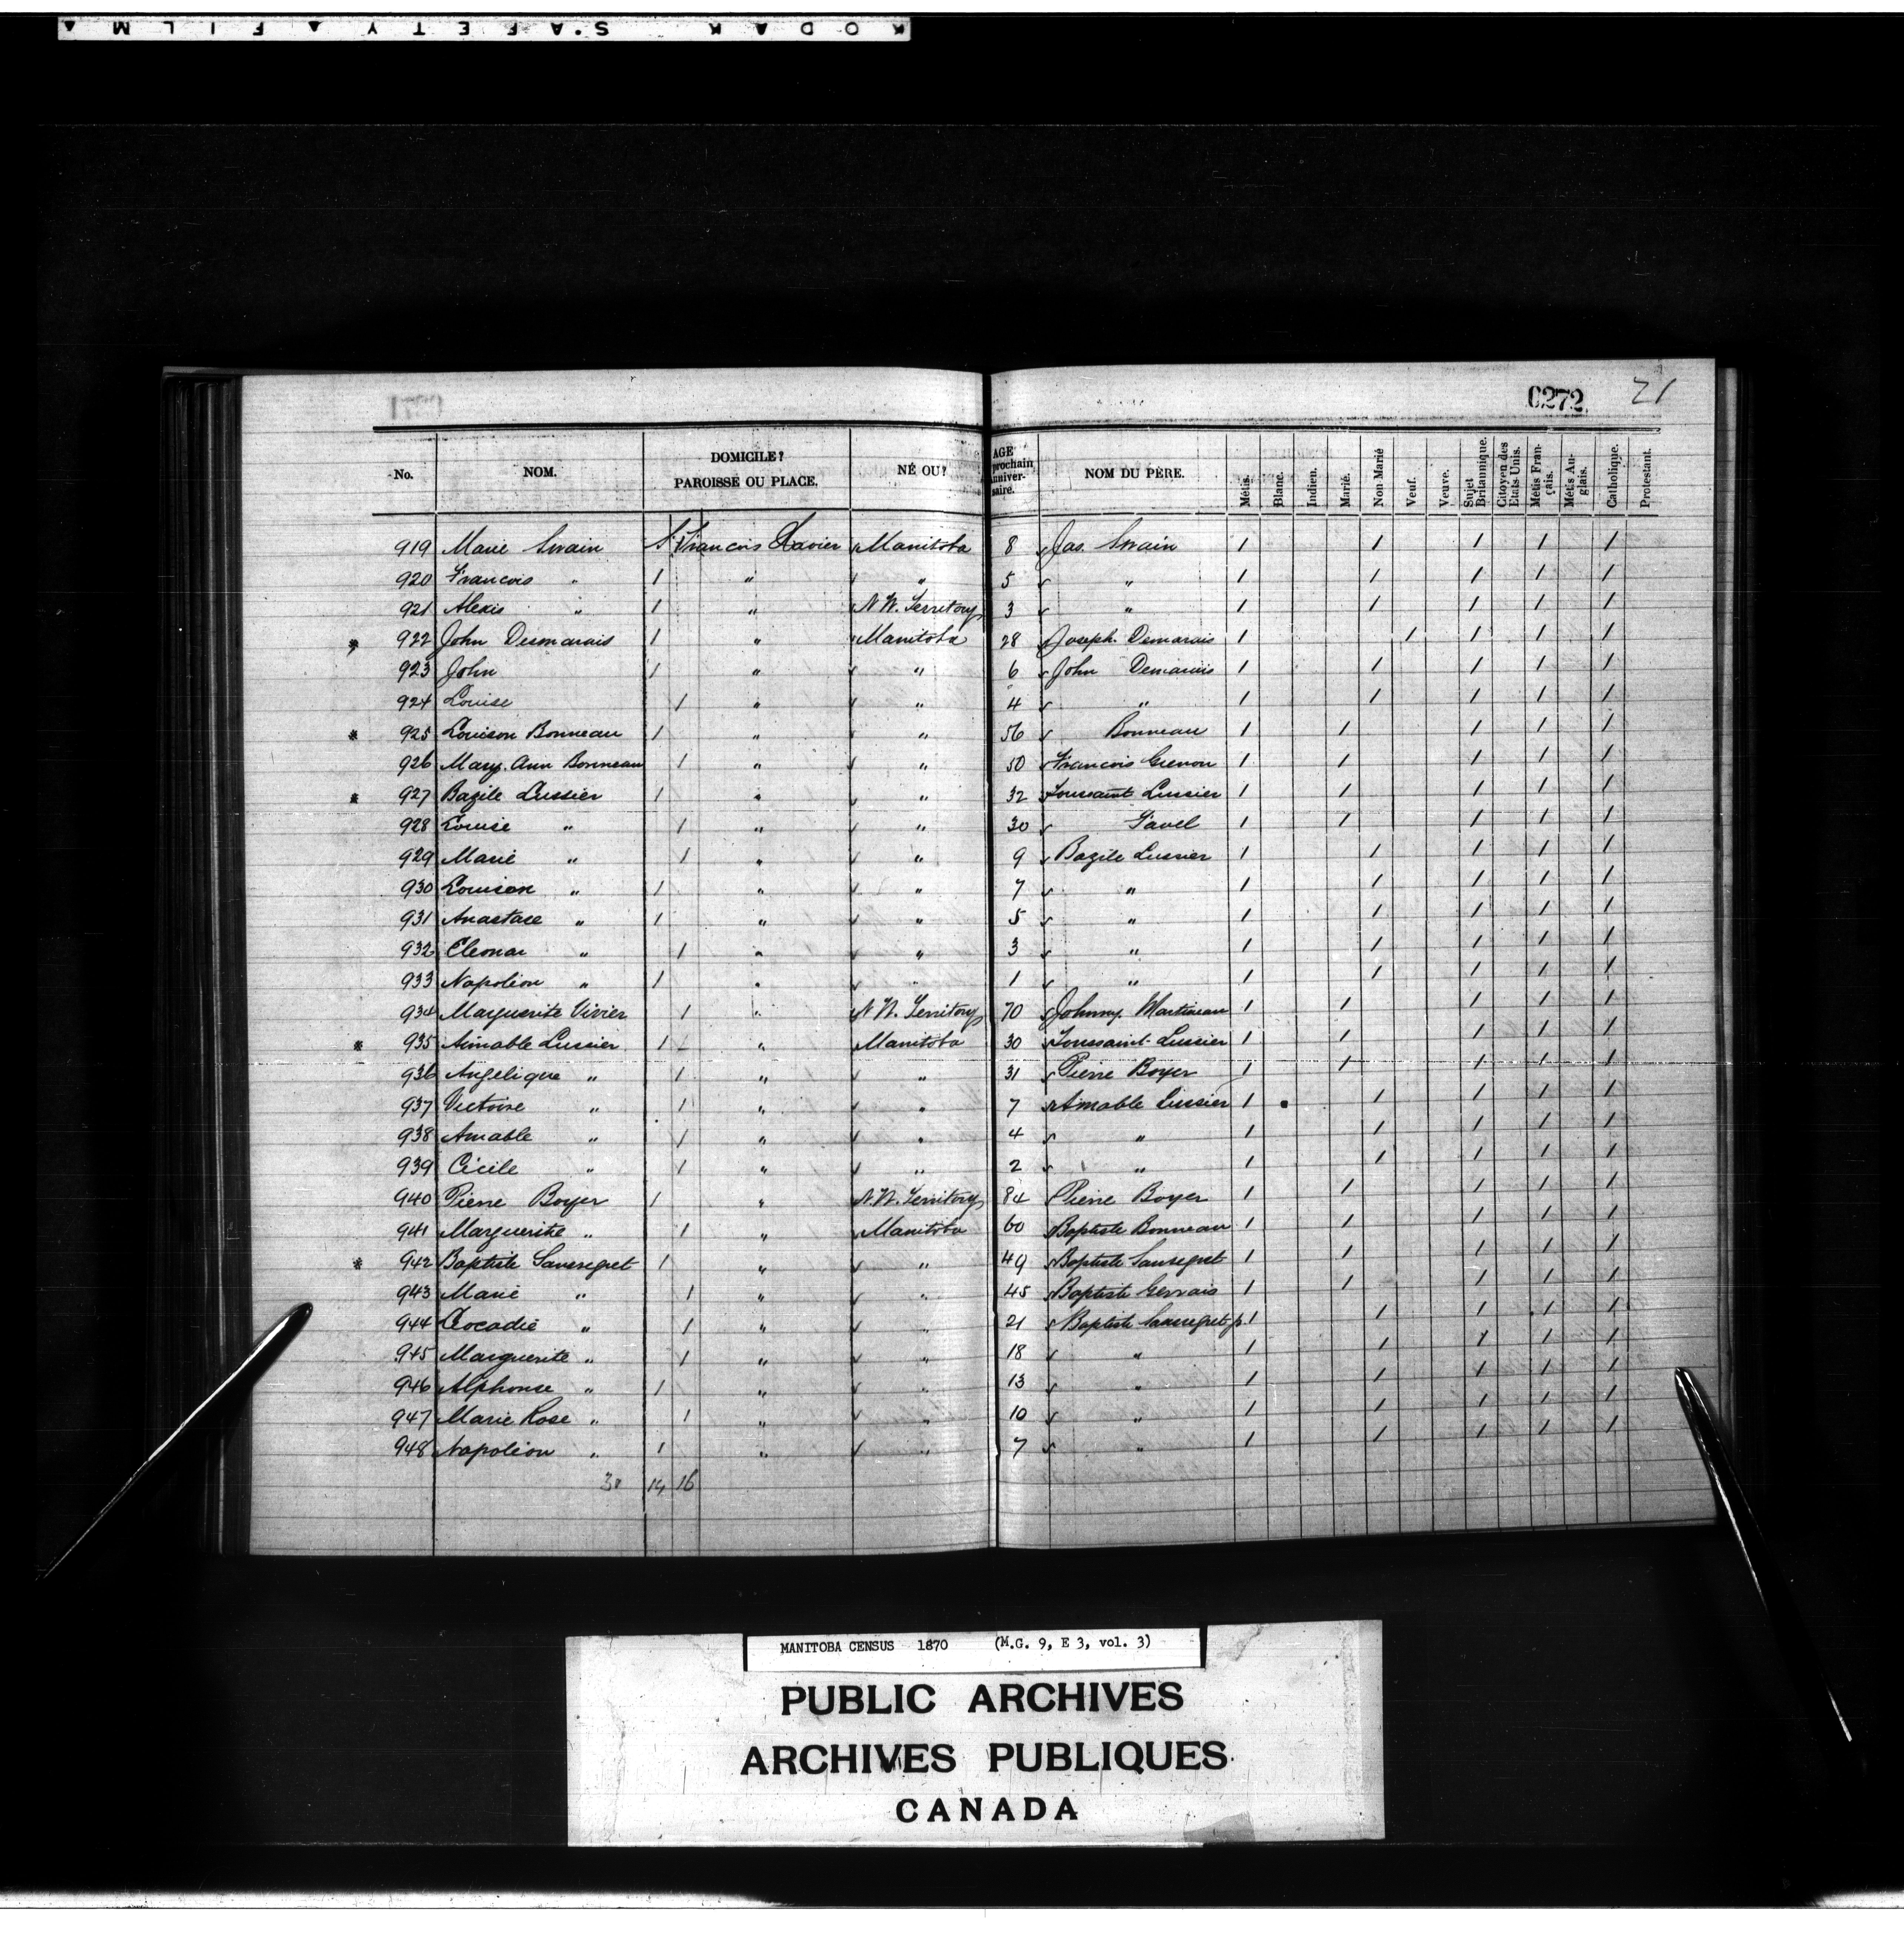 KODAK SAFETY FILM
0272 21
No. NOM. DOMICILE? PAROISSE OU PLACE. NÉ OU? AGE prochain anniversaire. NOM DU PÈRE. Métis. Blanc. Indien. Marié. Non Marié Veuf. Veuve. Sujet Britannique. Citoyen des Etats-Unis. Métis Français. Métis Anglais. Catholique. Protestant.
919 Marie Swain St François Xavier Manitoba 8 Jas. Swain 1 1 1 1 1
920 Francois " 1 " " 5 " 1 1 1 1 1
921 Alexis " 1 " N.W. Territory 3 " 1 1 1 1 1
* 922 John Desmarais 1 " Manitoba 28 Joseph Demarais 1 1 1 1 1
923 John 1 " " 6 John Demarais 1 1 1 1 1
924 Louise 1 " " 4 " 1 1 1 1 1
* 925 Louison Bonneau 1 " " 56 Bonneau 1 1 1 1 1
926 Mary Ann Bonneau 1 " " 50 Francois Grenon 1 1 1 1 1
* 927 Bazile Lussier 1 " " 32 Toussaint Lussier 1 1 1 1 1
928 Louise " 1 " " 30 Favel 1 1 1 1 1
929 Marie " 1 " " 9 Bazile Lussier 1 1 1 1 1
930 Louison " 1 " " 7 " 1 1 1 1 1
931 Anastase " 1 " " 5 " 1 1 1 1 1
932 Eleonar " 1 " " 3 " 1 1 1 1 1
933 Napoléon " 1 " " 1 " 1 1 1 1 1
934 Marguerite Vivier 1 " N.W. Territory 70 Johnny Martineau 1 1 1 1 1
* 935 Aimable Lussier 1 " Manitoba 30 Toussaint Lussier 1 1 1 1 1
936 Angelique " 1 " " 31 Pierre Boyer 1 1 1 1 1
937 Victoire " 1 " " 7 Aimable Lussier 1 1 1 1 1
938 Amable " 1 " " 4 " 1 1 1 1 1
939 Cécile " 1 " " 2 " 1 1 1 1 1
940 Pierre Boyer 1 " N.W. Territory 84 Pierre Boyer 1 1 1 1 1
941 Marguerite " 1 " Manitoba 60 Baptiste Bonneau 1 1 1 1 1
* 942 Baptiste Sansregret 1 " " 49 Baptiste Sansregret 1 1 1 1 1
943 Marie " 1 " " 45 Baptiste Gervais 1 1 1 1 1
944 Leocadie " 1 " " 21 Baptiste Sansregret p 1 1 1 1 1
945 Marguerite " 1 " " 18 " 1 1 1 1 1
946 Alphonse " 1 " " 13 " 1 1 1 1 1
947 Marie Rose " 1 " " 10 " 1 1 1 1 1
948 Napoléon " 1 " " 7 " 1 1 1 1 1
30 14 16
MANITOBA CENSUS 1870 (M.G. 9, E 3, vol. 3)
PUBLIC ARCHIVES
ARCHIVES PUBLIQUES
CANADA